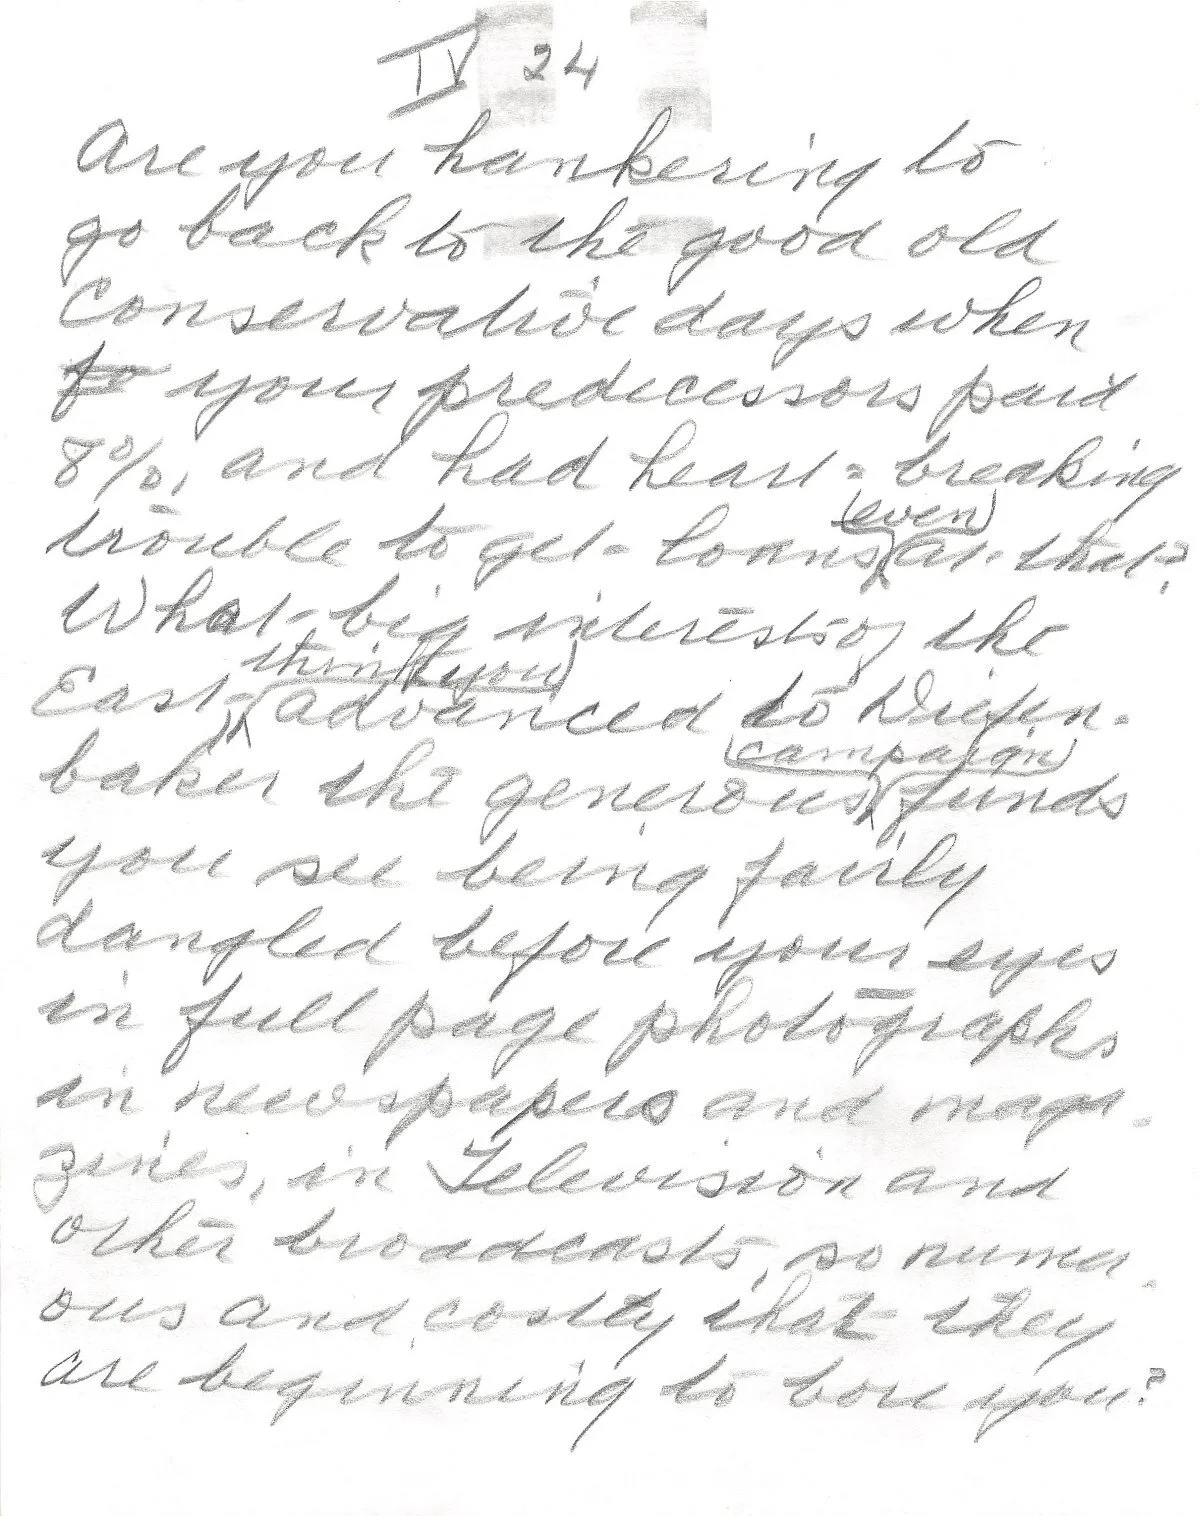 IV 24
Are you hankering to
go back to the good old
Conservative days when
to your predecessors paid
8%, and had heart-breaking
(even)
trouble to get loans at that?
What big interests of the
think you
East advanced to Diefen-
(campaign)
baker the generous funds
you see being fairly
dangled before your eyes
in full page photographs
in newspapers and maga-
zines, in Television and
other broadcasts, so numer-
ous and costly that they
are beginning to bore you?